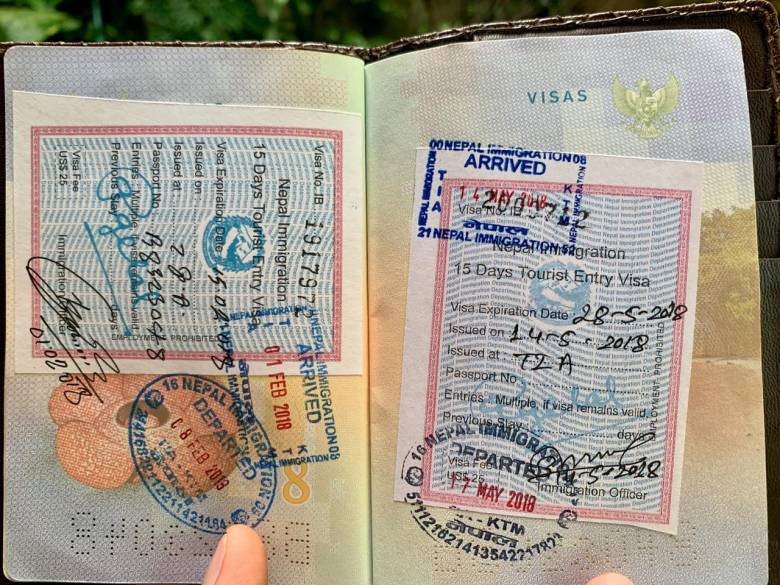 Visa No. IB
1917972
Nepal Immigration
15 Days Tourist Entry Visa
Visa Expiration Date
Issued on
Issued at
Passport No.
Entries: Multiple, if visa remains valid.
Previous Stay days
Visa Fee
US$ 25
Immigration Officer
EMPLOYMENT PROHIBITED
NEPAL IMMIGRATION08
ARRIVED
01 FEB 2018
KTM
नेपाल
16 NEPAL IMMIGRATION
DEPARTED
08 FEB 2018
नेपाल
VISAS
00 NEPAL IMMIGRATION08
ARRIVED
TIA
KTM
14 MAY 2018
Visa No. IB
नेपाल
21 NEPAL IMMIGRATION 52
Nepal Immigration
15 Days Tourist Entry Visa
Visa Expiration Date 28-5-2018
Issued on 14-5-2018
Issued at TIA
Passport No.
Entries: Multiple, if visa remains valid,
Previous Stay days
EMPLOYMENT PROHIBITED
16 NEPAL IMMIGRA
DEPARTED
Visa Fee
US$ 25
17 MAY 2018
Immigration Officer
- KTM
नेपाल